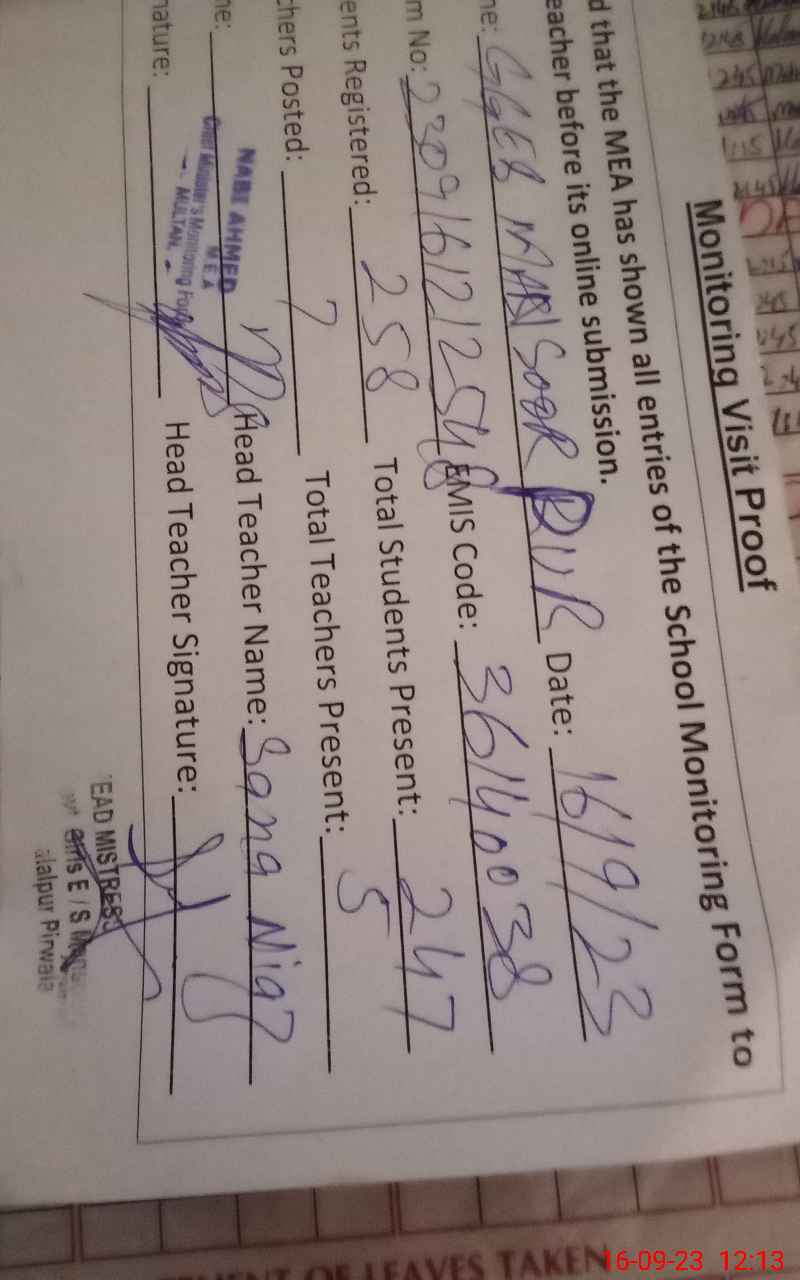 Monitoring Visit Proof
d that the MEA has shown all entries of the School Monitoring Form to
eacher before its online submission.
ne: GGES MANSOOR PUR Date: 16/9/23
m No: 2309161212548 EMIS Code: 36140038
ents Registered: 258 Total Students Present: 247
chers Posted: 7 Total Teachers Present: 5
ne: Head Teacher Name: Sana Niaz
NABI AHMED
M E A
Chief Minister's Monitoring Force
MULTAN.
nature: Head Teacher Signature:
EAD MISTRESS
Girls E / S
alalpur Pirwala
OF LEAVES TAKEN
16-09-23 12:13